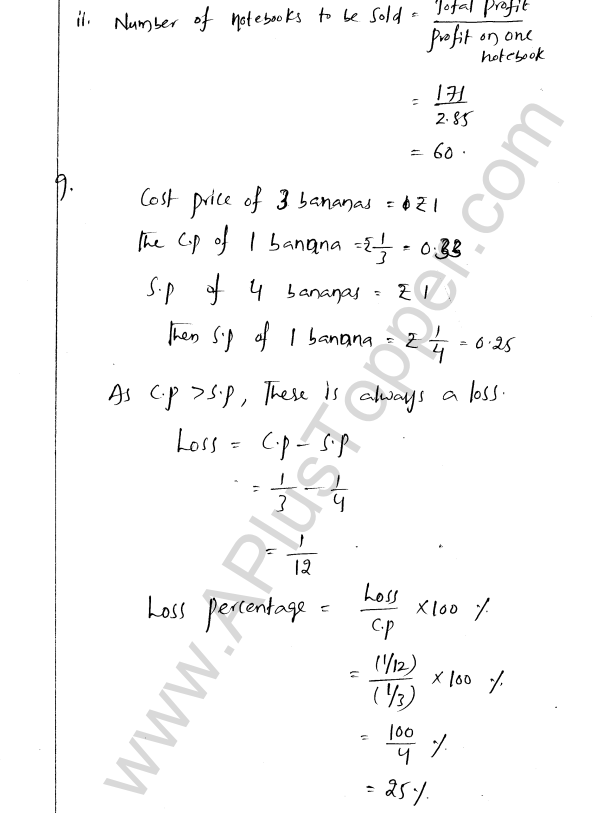 ii. Number of notebooks to be sold = Total Profit / Profit on one notebook
= 171 / 2.85
= 60.
9.
Cost price of 3 bananas = ₹1
The C.p of 1 banana = ₹ 1/3 = 0.33
S.p of 4 bananas = ₹ 1
Then S.p of 1 banana = ₹ 1/4 = 0.25
As C.p > S.p, There is always a loss.
Loss = C.p – S.p
= 1/3 – 1/4
= 1/12
Loss percentage = Loss / C.p × 100 %
= (1/12) / (1/3) × 100 %
= 100/4 %
= 25 %.
www.APlusTopper.com